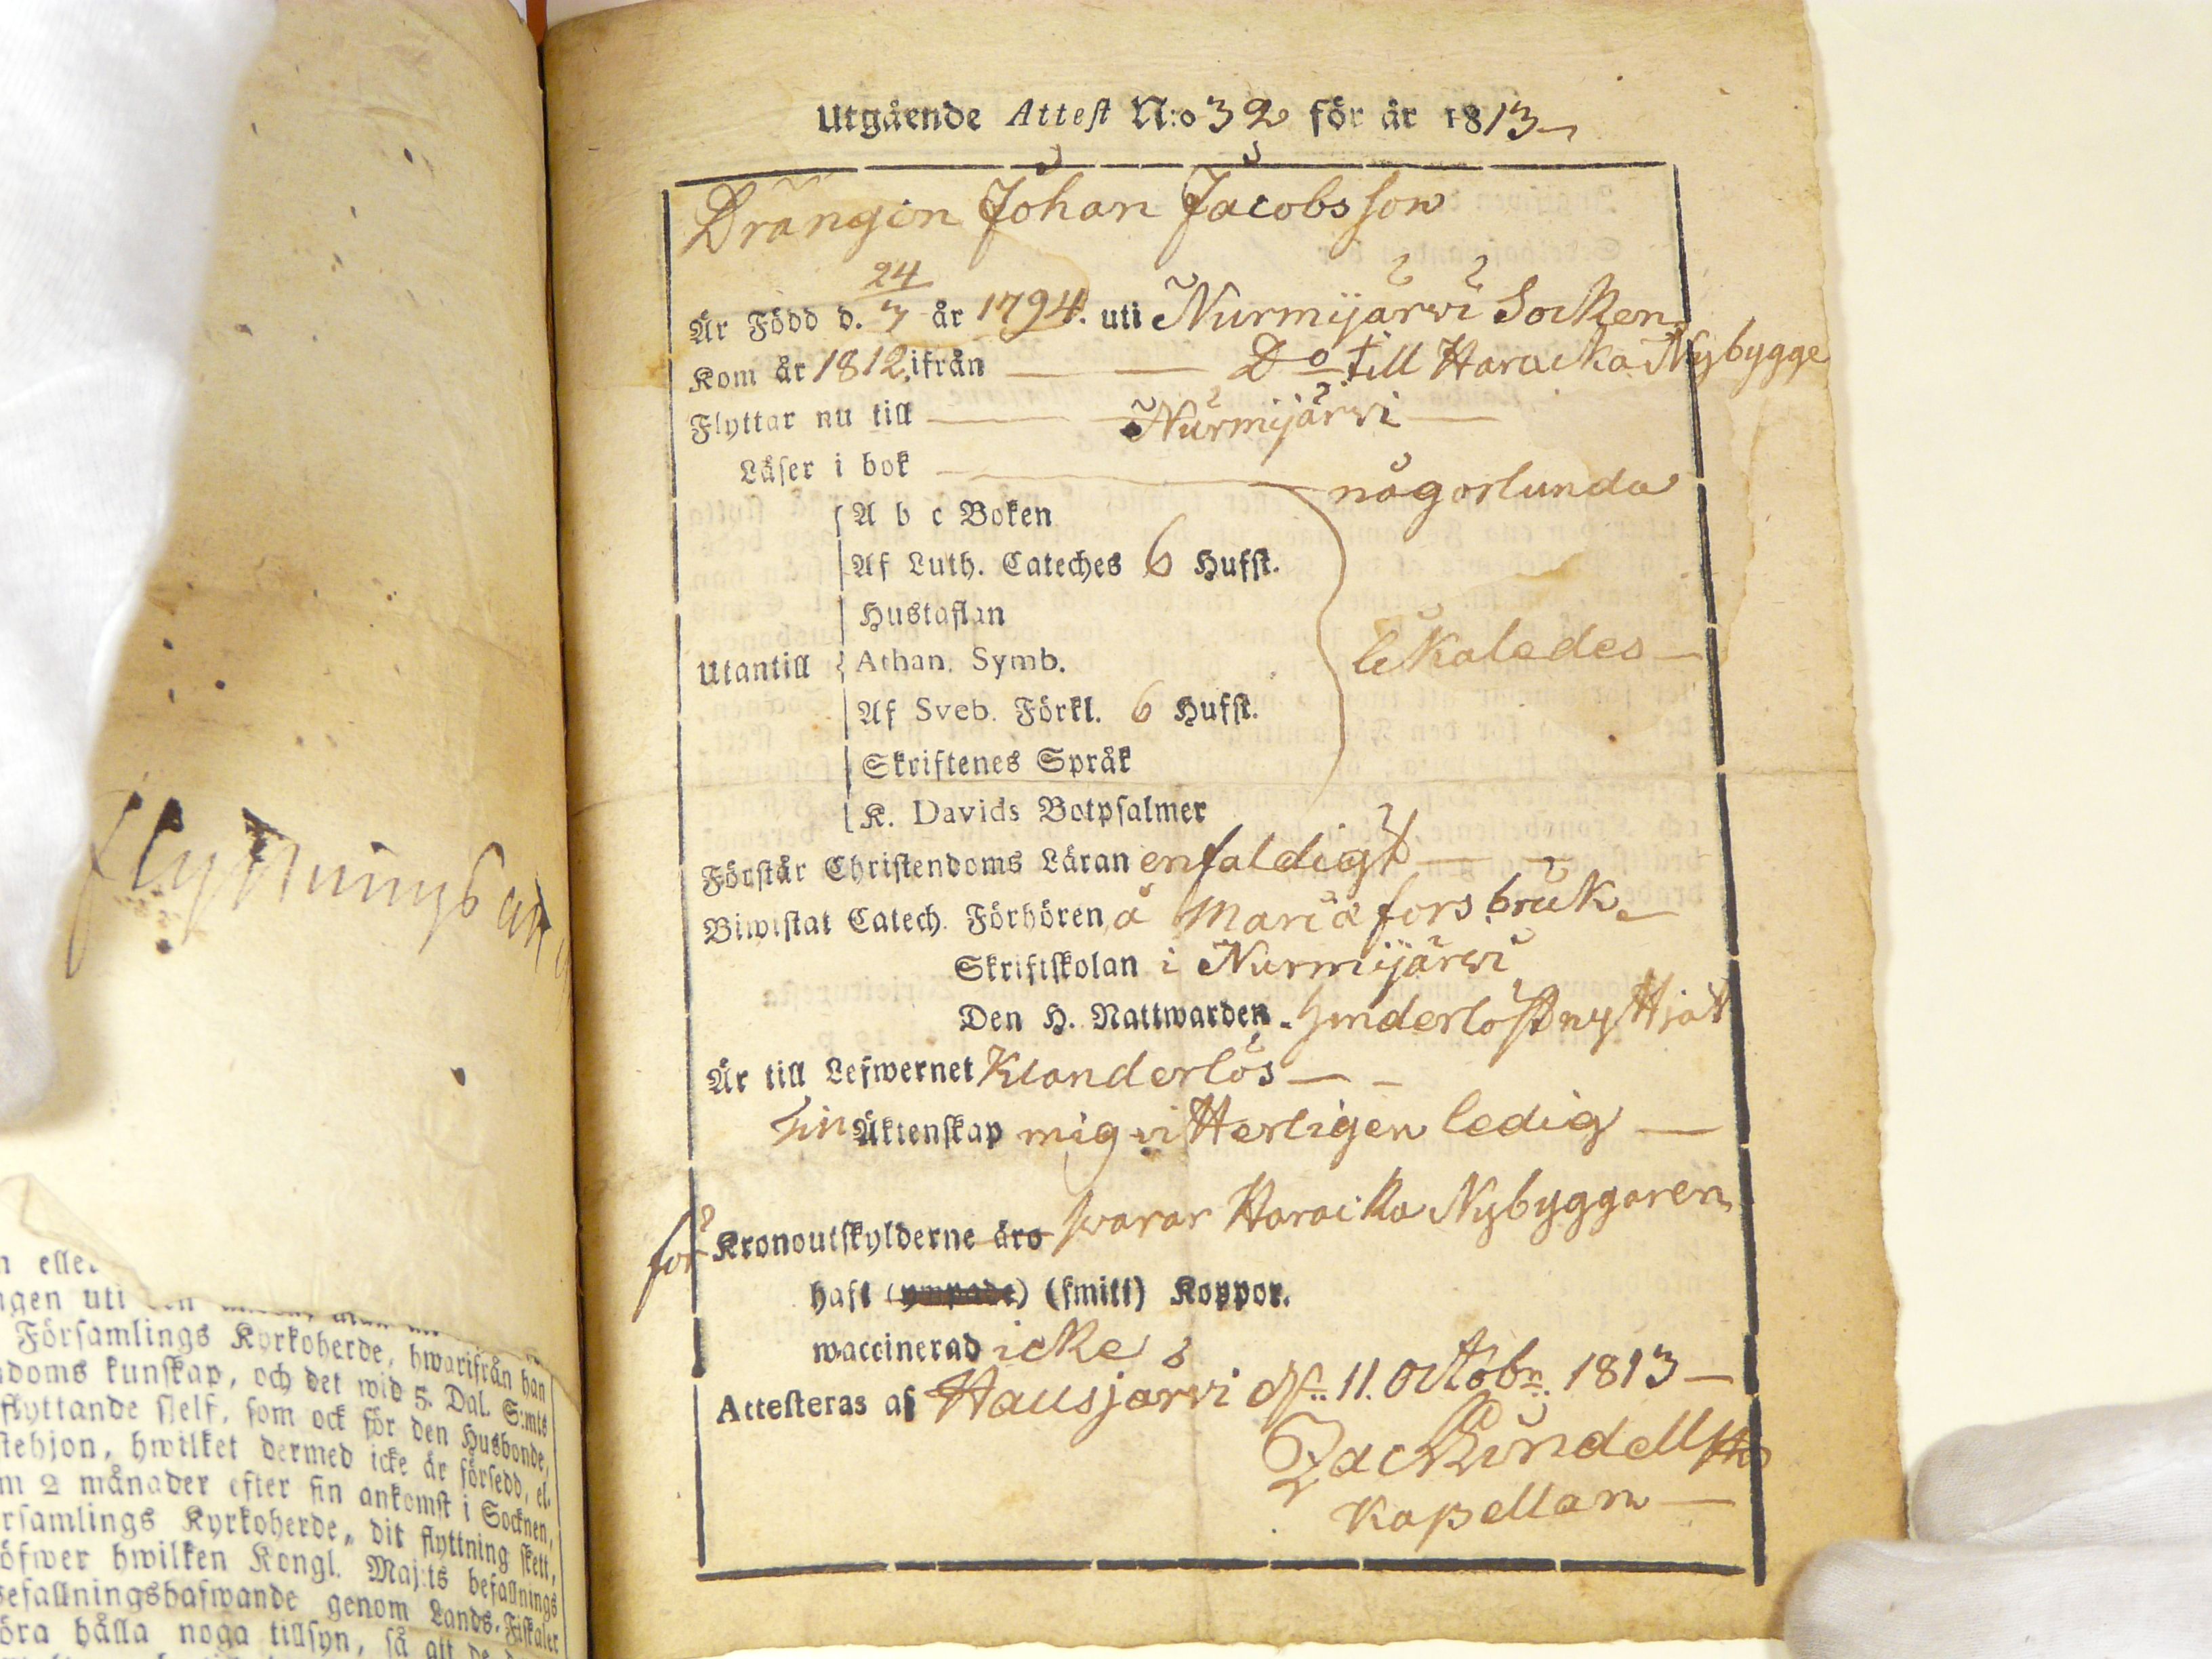 Utgående Attest N:o 32 för år 1813
Drängen Johan Jacobsson
Är Född d. 24/7 år 1794. uti Nurmijärvi Socken
Kom år 1812 ifrån — — Do till Haracka Nybygge
Flyttar nu till — Nurmijärvi —
Läser i bok — någorlunda
A b c Boken
Af Luth. Cateches 6 Hufst.
Hustaflan
Utantill Athan. Symb. likaledes —
Af Sveb. Förkl. 6 Hufst.
Skriftenes Språk
K. Davids Botpsalmer
Förstår Christendoms Läran enfaldigt — —
Biwistat Catech. Förhören å Mariæfors bruk —
Skriftskolan i Nurmijärvi
Den H. Nattwarden hinderlöst nyttjat
Är till Lefwernet Klanderlös — —
Till Äktenskap mig vitterligen ledig —
för Kronoutskylderne äro svarar Haracka Nybyggaren
haft (ympade) (smitt) Koppor.
waccinerad icke
Attesteras af Hausjärvi d. 11. Octobr. 1813 —
Zac Lundell
Kapellan —
flyttnings
n eller
ngen uti
Församlings Kyrkoherde, hwarifrån han
doms kunskap, och det wid 5. Dal. S:mts
flyttande sjelf, som ock för den Husbonde,
stehjon, hwilket dermed icke är försedd, el-
m 2 månader efter sin ankomst i Socknen,
rsamlings Kyrkoherde, dit flyttning skett,
öfwer hwilken Kongl. Maj:ts befallnings
befallningshafwande genom Lands-Fiskaler
öra hålla noga tillsyn, så att de